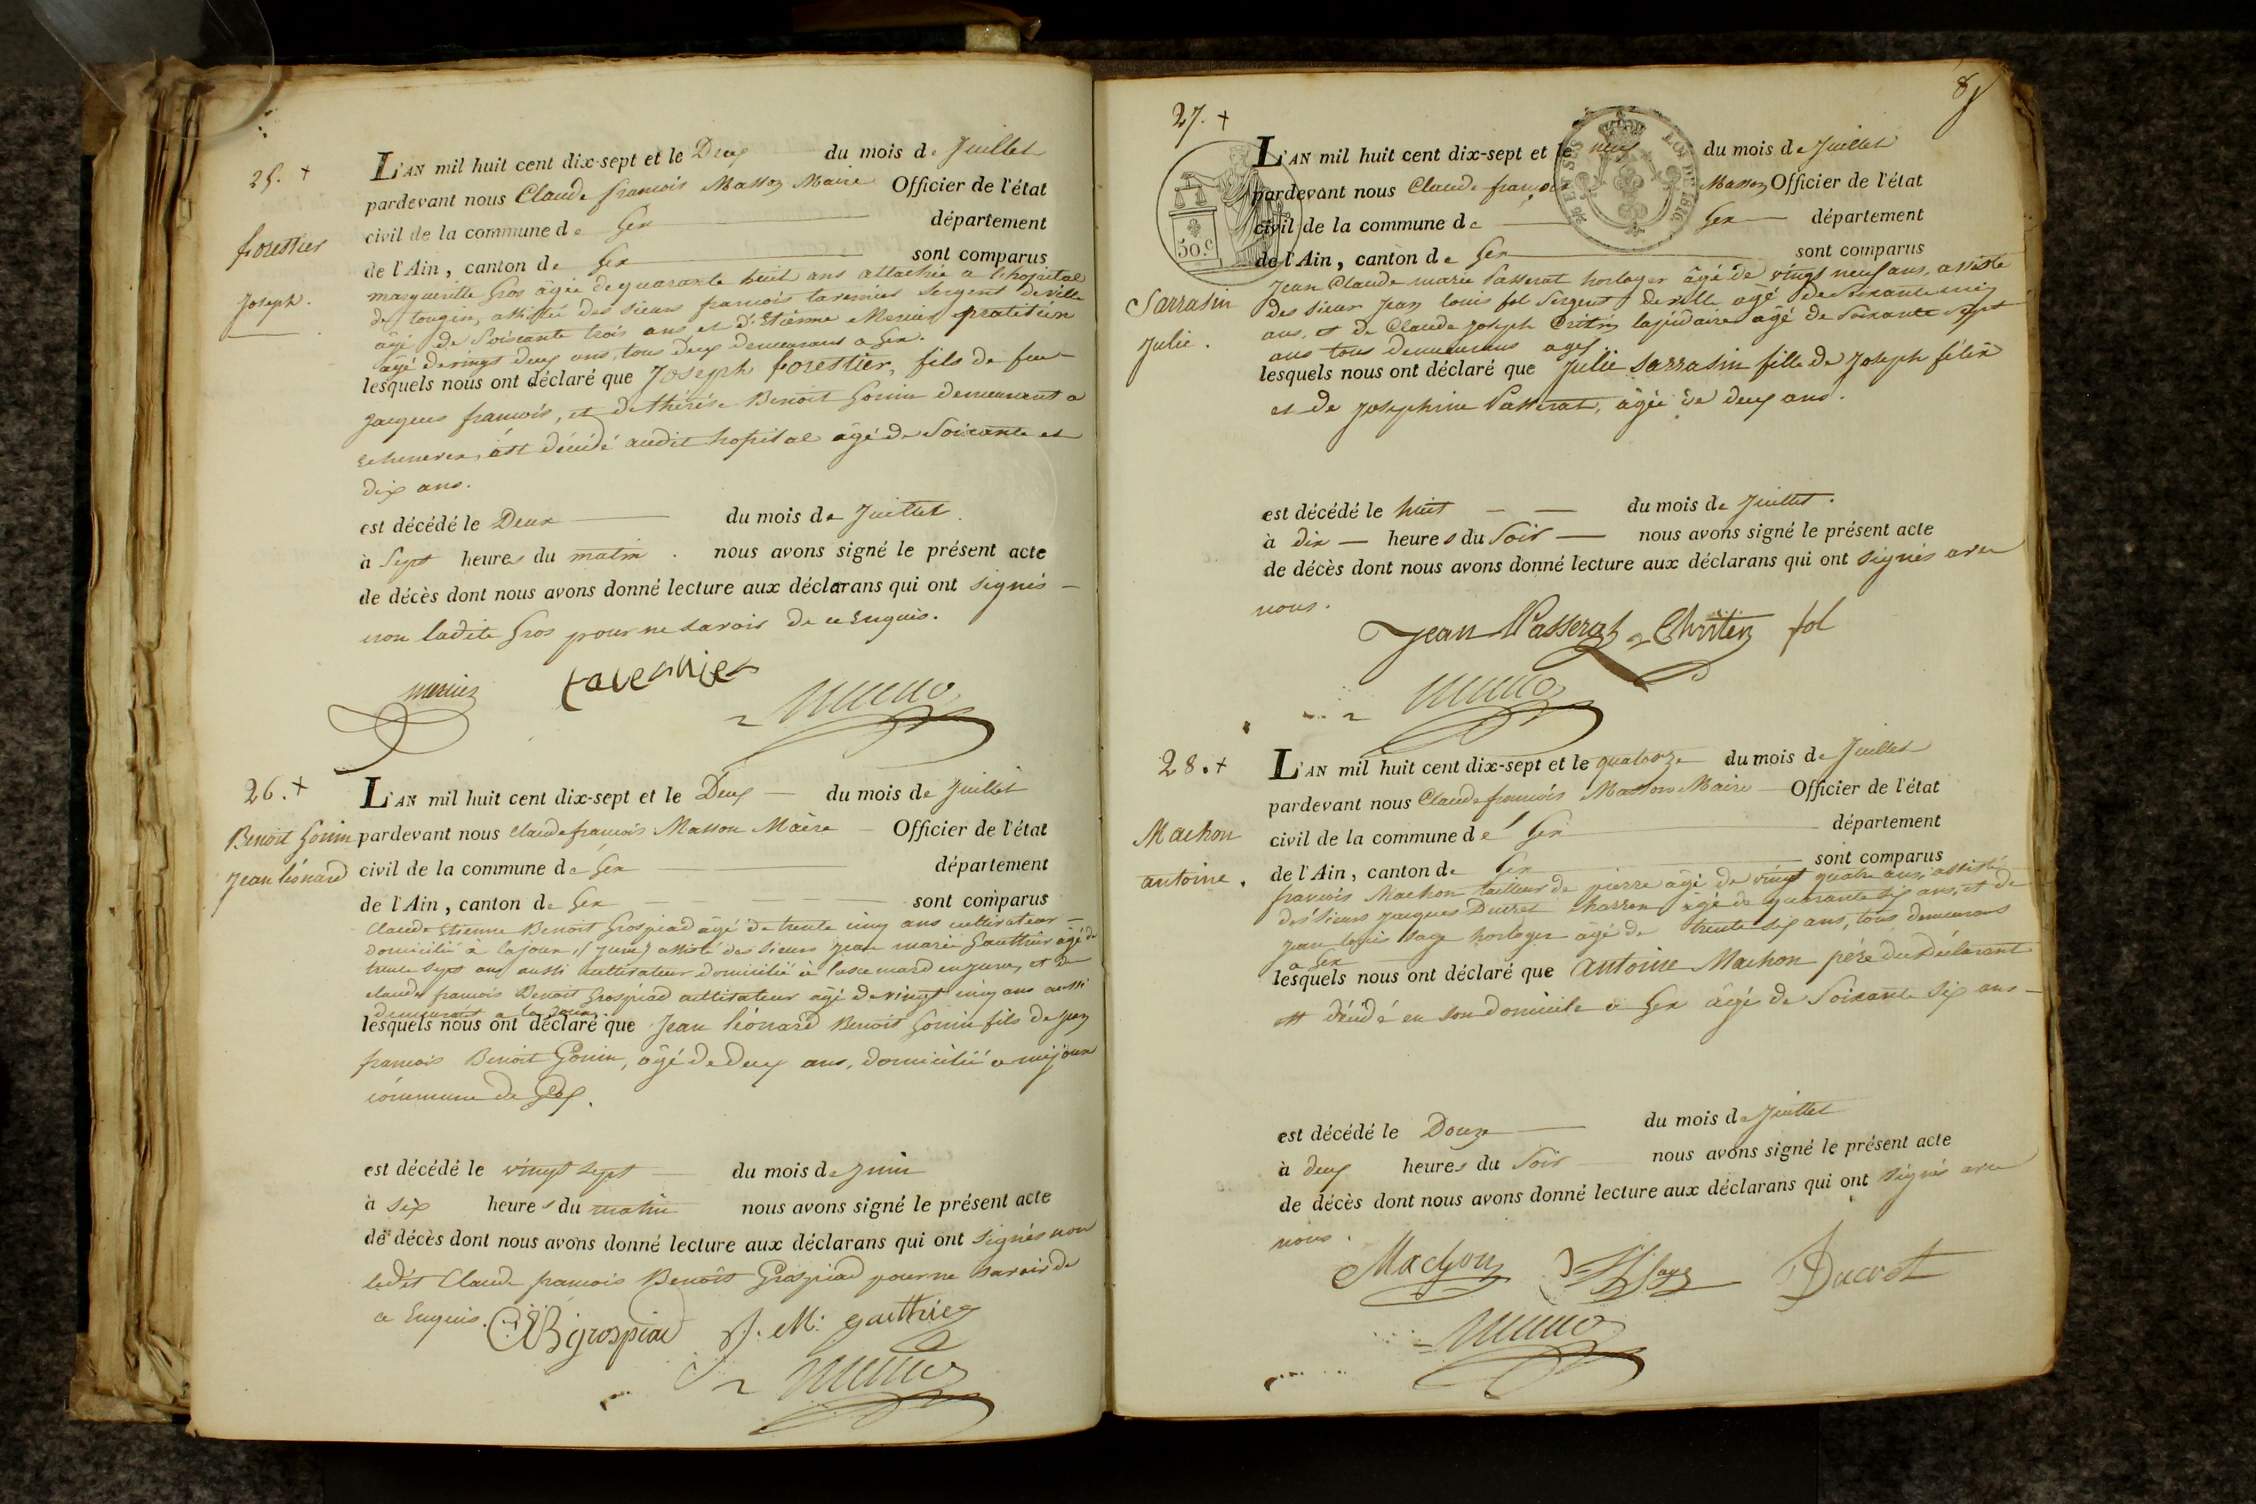 25. +
forestier
Joseph.
L'AN mil huit cent dix-sept et le Deux du mois de Juillet
pardevant nous Claude francois Masson Maire Officier de l'état
civil de la commune de Gex département
de l'Ain, canton de Gex sont comparus
margueritte Gros âgée de quarante huit ans attachée a l'hopital
de tougin, assistée des sieurs francois tavernier sergent de ville
âgé de Soixante trois ans et d'Etienne Mercier praticien
âgé de vingt deux ans, tous deux demeurans a Gex.
lesquels nous ont déclaré que Joseph forestier, fils de feu
Jacques francois, et de thérése Benoit Gonin demeurant a
Echenevex, est décédé audit hopital âgé de Soixante et
dix ans.
est décédé le Deux du mois de Juillet.
à Sept heures du matin. nous avons signé le présent acte
de décès dont nous avons donné lecture aux déclarans qui ont signés
non ladite Gros pour ne savoir de ce Enquis.
mercier tavernier
26. +
Benoit Gonin
Jean léonard
L'AN mil huit cent dix-sept et le Deux du mois de Juillet
pardevant nous Claude francois Masson Maire Officier de l'état
civil de la commune de Gex département
de l'Ain, canton de Gex sont comparus
Claude Etienne Benoit Grospiad âgé de trente cinq ans cultivateur
domicilié à lajoux, (jura) assisté des sieurs Jean marie Gauthier âgé de
trente sept ans aussi cultivateur domicilié à en jura, et de
claude francois Benoit Grospiad cultivateur âgé de vingt cinq ans aussi
demeurant a la joux.
lesquels nous ont déclaré que Jean léonard Benoit Gonin fils de jean
francois Benoit Gonin, âgé de deux ans, domicilié a mijoux
commune de Gex.
est décédé le vingt sept du mois de Juin
à six heures du matin nous avons signé le présent acte
de décès dont nous avons donné lecture aux déclarans qui ont signés non
ledit Claude francois Benoit Grospiad pour ne savoir de
ce Enquis. CEB grospiad J. M. gauthier
8
27. +
Sarrasin
Julie.
50.c
25 EN SUS
LOI DE 1816
L'AN mil huit cent dix-sept et le neuf du mois de Juillet
pardevant nous Claude françois Masson Officier de l'état
civil de la commune de Gex département
de l'Ain, canton de Gex sont comparus
Jean Claude marie Passerat horloger âgé de vingt neuf ans, assisté
des sieur Jean louis fol Sergent de ville âgé de Soixante cinq
ans, et de Claude Joseph Critin lapidaire âgé de Soixante Sept
ans tous demeurans a gex
lesquels nous ont déclaré que Julie Sarrasin fille de Joseph félix
et de Josephine Passerat, âgée de deux ans.
est décédé le huit du mois de Juillet.
à dix heures du Soir nous avons signé le présent acte
de décès dont nous avons donné lecture aux déclarans qui ont signés avec
nous.
Jean Passerat Chritin fol
28. +
Machon
antoine.
L'AN mil huit cent dix-sept et le quatorze du mois de Juillet
pardevant nous Claude francois Masson Maire Officier de l'état
civil de la commune de Gex département
de l'Ain, canton de Gex sont comparus
francois Machon tailleur de pierre âgé de vingt quatre ans, assisté
des Sieurs Jacques Ducret charron âgé de quarante six ans, et de
Jean louis sage horloger âgé de trente six ans, tous demeurans
a Gex
lesquels nous ont déclaré que antoine Machon père du Déclarant
est décédé en son domicile a Gex âgé de Soixante Six ans
est décédé le Douze du mois de Juillet
à deux heures du Soir nous avons signé le présent acte
de décès dont nous avons donné lecture aux déclarans qui ont signés avec
nous.
Machon Sage Ducret